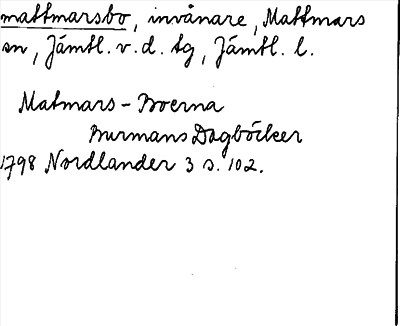 mattmarsbo, invånare, Mattmars
sn, Jämtl. v. d. tg, Jämtl. l.
Matmars-Boerna
Burmans Dagböcker
1798 Nordlander 3 s. 102.